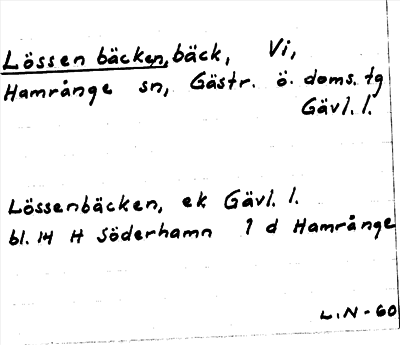 Lössenbäcken, bäck, Vi,
Hamrånge sn, Gästr. ö. doms. tg
Gävl. l.
Lössenbäcken, ek Gävl. l.
bl. 14 H Söderhamn 1 d Hamrånge
L.N-60